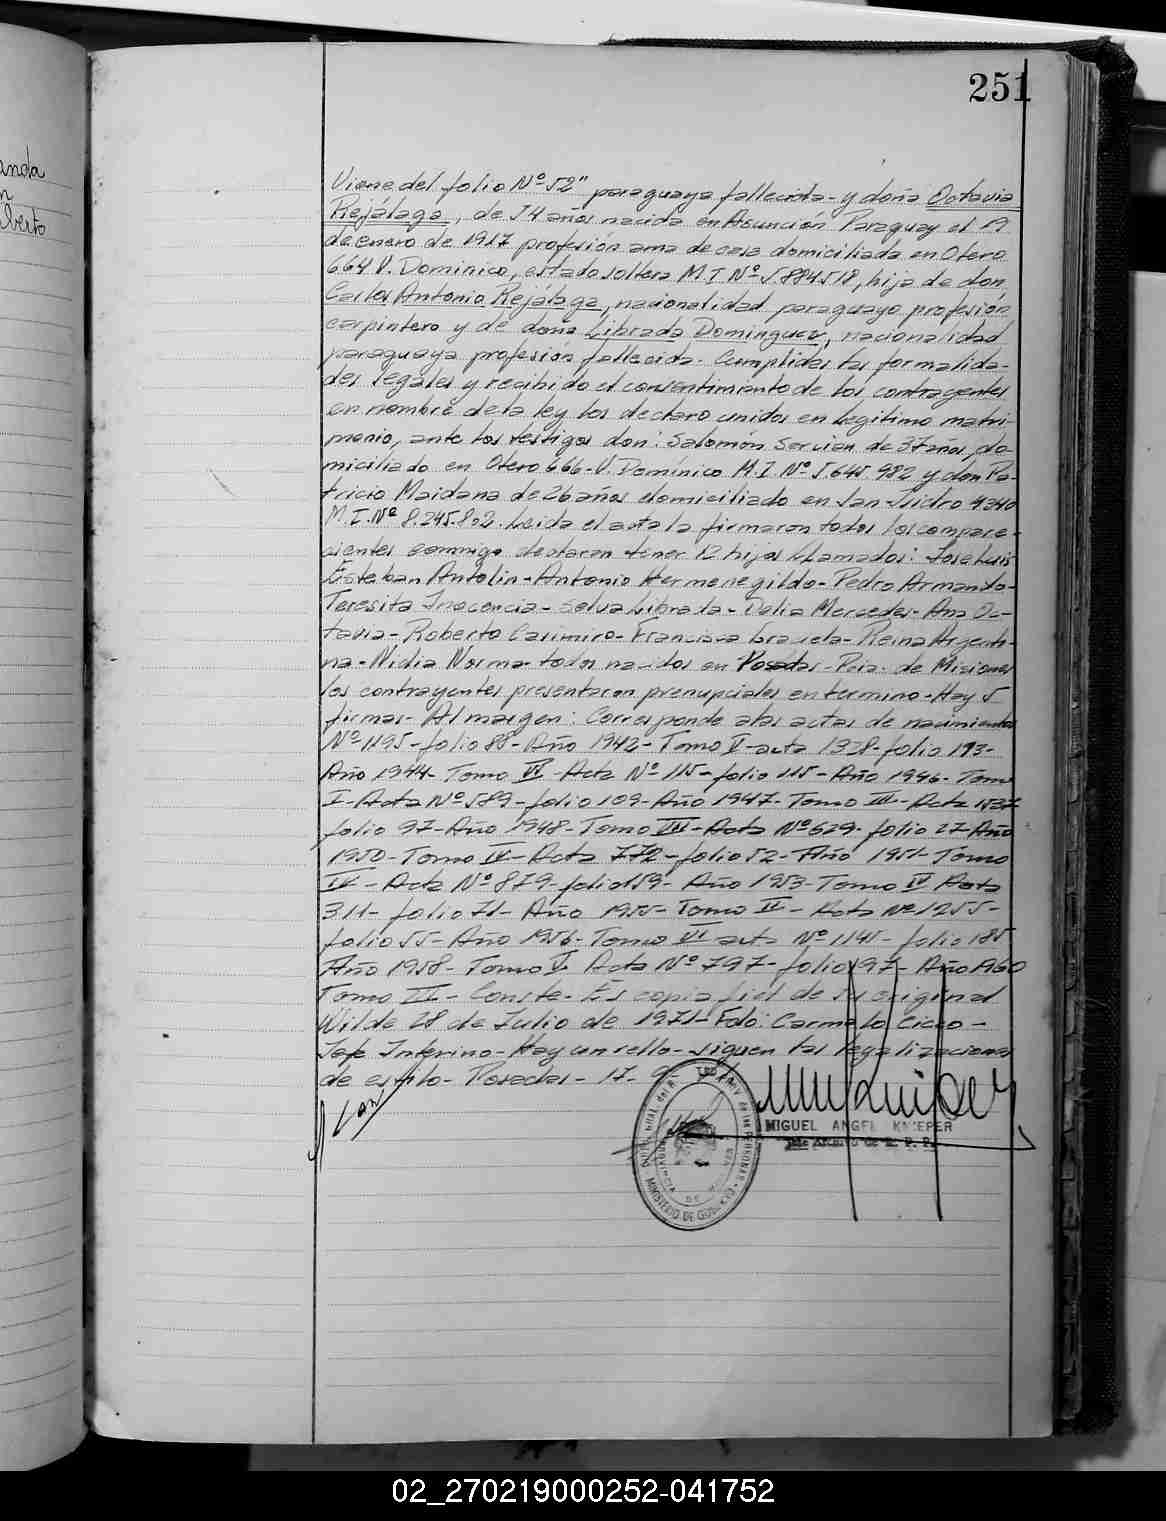 251
anda
n
lberto
Viene del folio Nº 52" paraguaya fallecida - y doña Octavia
Rejálaga, de 54 años nacida en Asunción Paraguay el 19
de enero de 1917 profesión ama de casa domiciliada en Otero
664 V. Dominico, estado soltera M.I Nº 5.884.518, hija de don
Carlos Antonio Rejálaga, nacionalidad paraguayo profesión
carpintero y de doña Librada Dominguez, nacionalidad
paraguaya profesión fallecida. Cumplidas las formalida-
des legales y recibido el consentimiento de los contrayentes
en nombre de la ley los declaro unidos en legitimo matri-
monio, ante los testigos don: Salomón Servian de 37 años do-
miciliado en Otero 666 - V. Dominico M.I. Nº 5.645.982 y don Pa-
tricio Maidana de 26 años domiciliado en San Isidro 4340
M.I. Nº 8.245.802. Leida el acta la firmaron todos los compare-
cientes conmigo declaran tener 12 hijos llamados: José Luis
Esteban Antolin - Antonio Hermenegildo - Pedro Armando -
Teresita Inocencia - Selva Librada - Delia Mercedes - Ana Oc-
tavia - Roberto Casimiro - Francisca Graciela - Reina Argenti-
na - Nidia Norma - todos nacidos en Posadas - Pcia. de Misiones
los contrayentes presentaron prenupciales en termino - Hay 5
firmas - Al margen: Corresponde a las actas de nacimientos
Nº 1195 - folio 88 - Año 1942 - Tomo V - acta 1328 - folio 193 -
Año 1944 - Tomo VI - Acta Nº 115 - folio 115 - Año 1946 - Tomo
I - Acta Nº 589 - folio 109 - Año 1947 - Tomo III - Acta 1537
folio 97 - Año 1948 - Tomo VII - Acta Nº 629 - folio 27 - Año
1950 - Tomo IV - Acta 772 - folio 52 - Año 1951 - Tomo
IV - Acta Nº 879 - folio 159 - Año 1953 - Tomo IV Acta
311 - folio 71 - Año 1955 - Tomo II - Acta Nº 1255 -
folio 55 - Año 1956 - Tomo VI acta Nº 1145 - folio 185
Año 1958 - Tomo V Acta Nº 797 - folio 197 - Año 1960
Tomo III - Conste - Es copia fiel de su original
Wilde 28 de Julio de 1971 - Fdo: Carmelo Cicco -
Jefe Interino - Hay un sello - siguen las legalizaciones
de estilo - Posadas - 17 - 9
MIGUEL ANGEL KNIEPER
MINISTERIO DE GOBIERNO
02_270219000252-041752